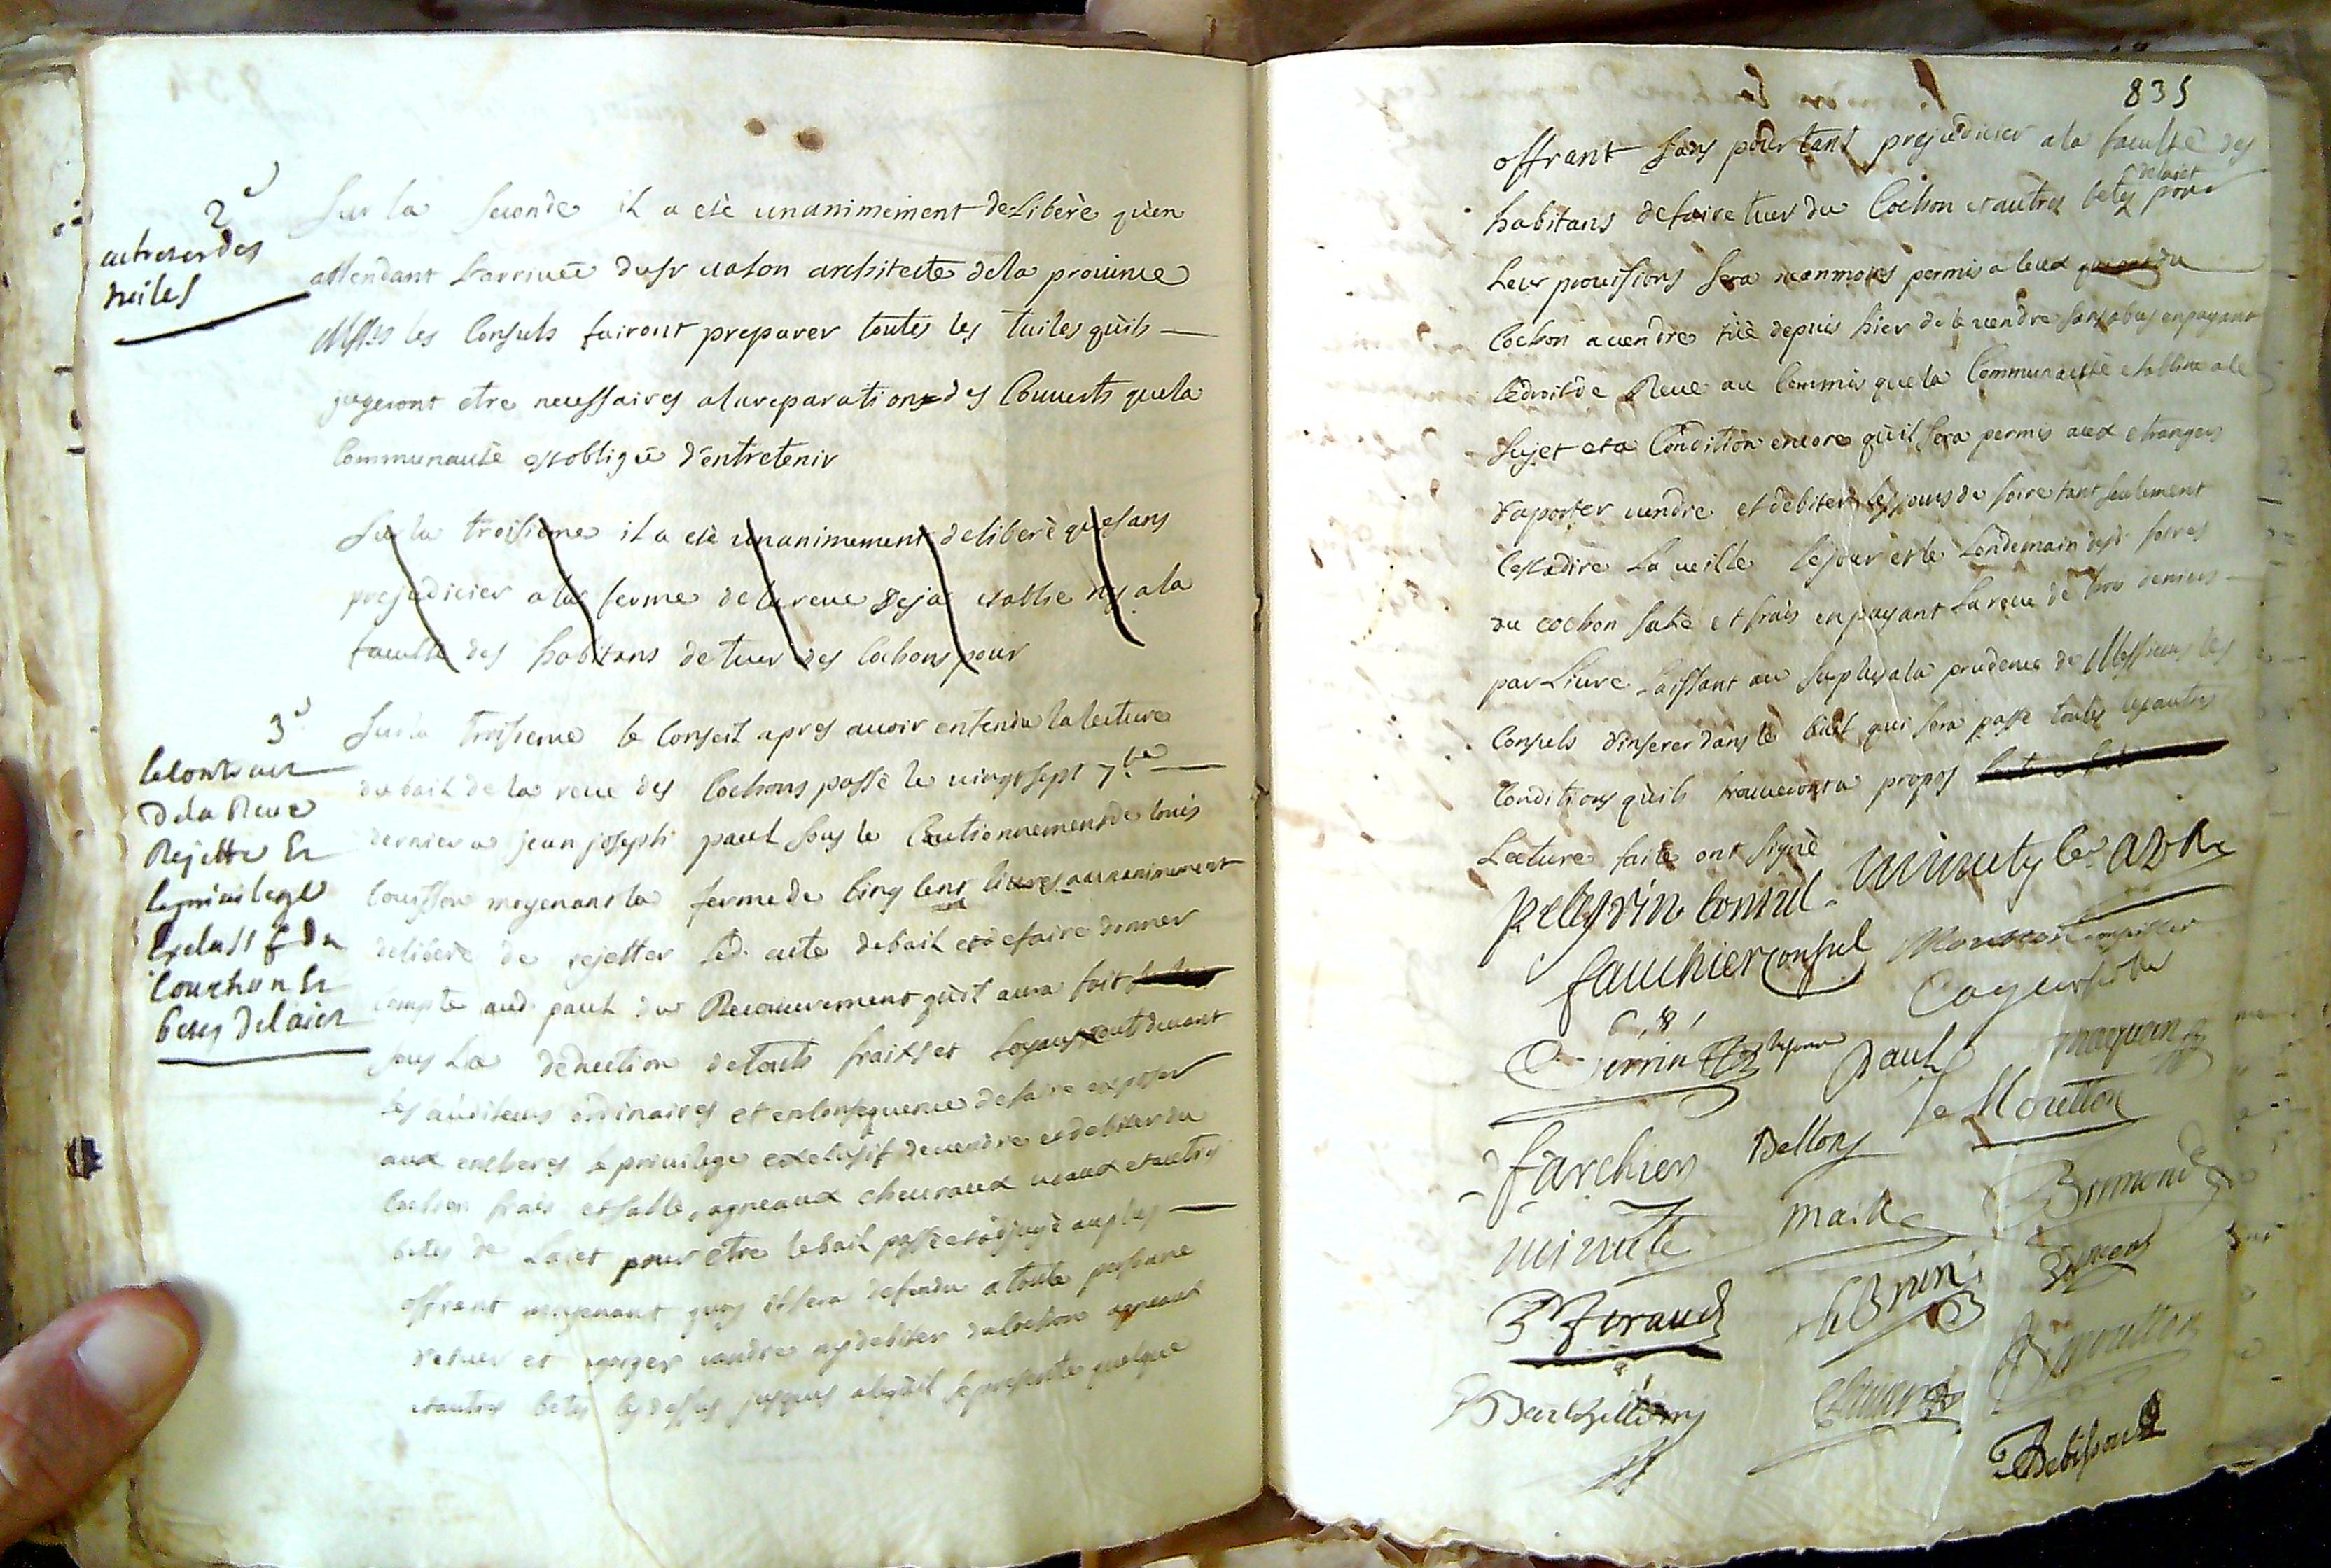 2e
achever des
tuiles
Sur la seconde il a eté unanimement deliberé qu'en
attendant l'arriveé du sr valon architecte dela province
Mssrs les Consuls fairont preparer toutes les tuiles qu'ils
jugeront etre necessaires alareparation des Couverts quela
Communauté est obligeé d'entretenir
Sur la troisieme il a eté unanimement deliberé que sans
prejudicier ala ferme delareve deja etablie ny ala
faculté des habitans de tuer des Cochons pour
3e
le contract
dela Reve
Rejetté Et
le privilege
Exclusif du
Couchon Et
betes delaict
Sur la troisieme le Conseil apres avoir entendu la lecture
du bail de la reve des Cochons passé le vingt sept 7bre
dernier a jean joseph paul sous le Cautionnement de louis
moyenant la ferme de Cinq Cent livres a unanimement
deliberé de rejetter led. acte debail et de faire donner
compte aud. paul du Recouvrement qu'il aura fait
sous La deduction de touts fraixs et Loyaux cout devant
les auditeurs ordinaires et en Consequence de faire exposer
aux encheres le privilege exclusif de vendre et debiter du
Cochon frais et sallé, agneaux chevraux veaux et autres
betes de Laict pour etre le bail passé et adjugé au plus
offrant moyenant quoy il sera defendu a toute personne
de tuer et egorger vendre ny debiter du Cochon agneaux
et autres betes Cy dessus jusques a ce qu'il se presente quelque
835
offrant sans pourtant prejudicier ala faculté des
habitans de faire tuer du Cochon et autres betes delaict pour
Leur provisions sera neanmoins permis a Ceux qui ont du
Cochon a vendre tué depuis hier de le vendre sans abus en payant
le droit de Reve au Commis que la Communauté etablira a le
sujet et a Condition encore qu'il sera permis aux etrangers
d'aporter vendre et debiter les jours de foire tant seulement
Cest adire La veille le jour et le Lendemain desd. foires
du cochon salé et frais en payant La reve de trois deniers
par Livre Laissant au surplus ala prudence de Messieurs les
Consuls d'inserer dans le bail qui sera passé toutes les autres
Conditions qu'ils trouveront a propos
Lecture faite ont signé
pelegrin Consul
minuty le
fauchier Consul
perrin
paul
maquan
Le Moutton
farchier
Bellon
minute
maille
Brunond
giraud
leBrun